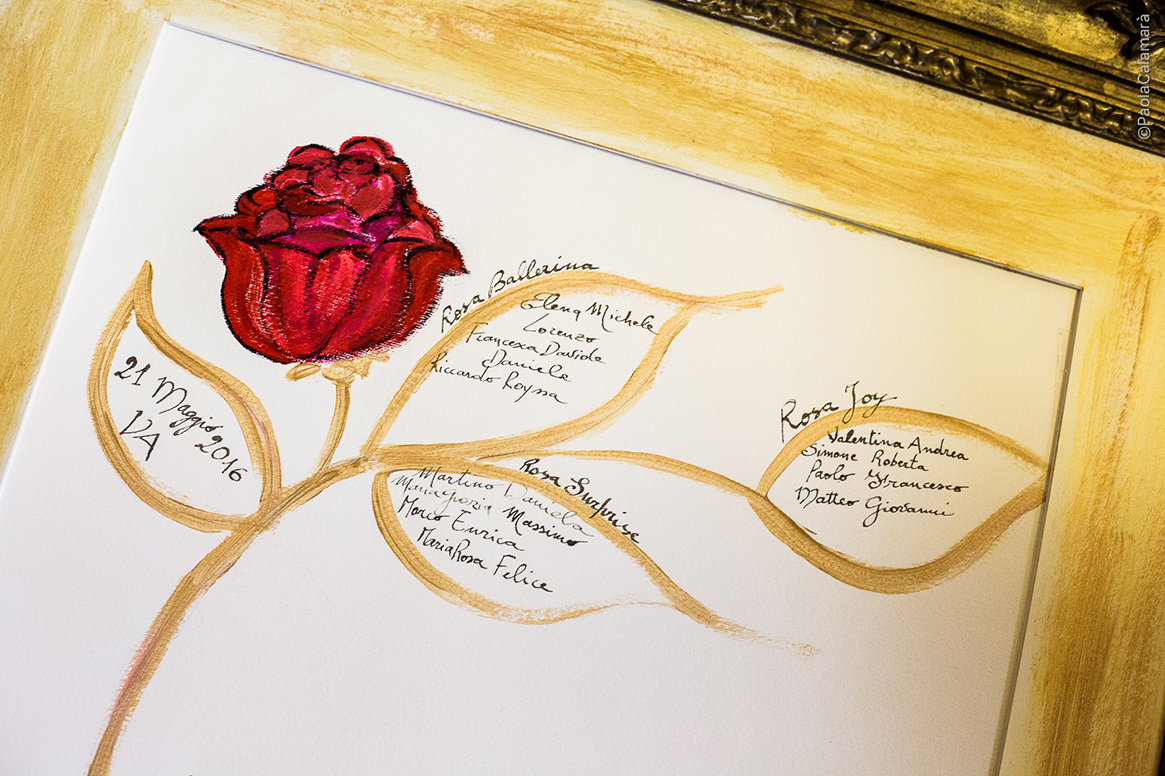 ©PaolaCalamarà
21 Maggio 2016
VA
Rosa Ballerina
Elena Michele
Lorenzo
Francesca Davide
Daniele
Riccardo Royssa
Rosa Surprise
Martino Daniela
Mariagrazia Massimo
Marco Enrica
MariaRosa Felice
Rosa Joy
Valentina Andrea
Simone Roberta
Paolo Francesco
Matteo Giovanni